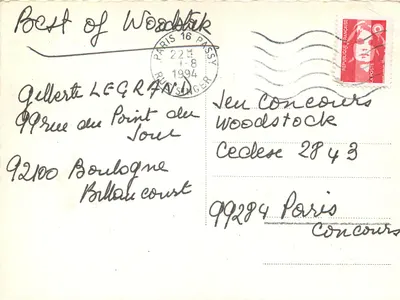 Best of Woodstck
PARIS 16 PASSY
22H
1-8
1994
R SINGER
REPUBLIQUE FRANÇAISE
Gilberte LEGRAND
99 rue du Point du
Jour
92100 Boulogne
Billancourt
Jeu Concours
Woodstock
Cedese 2843
99284 Paris
Concours